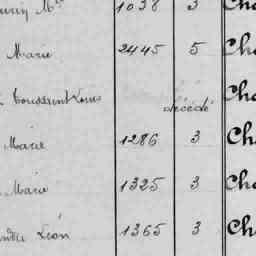 1038 3
Marie 2445 5 Ch
Toussaint Louis décédé Ch
Marie 1286 3 Ch
Marie 1325 3 Ch
Léon 1365 3 Ch